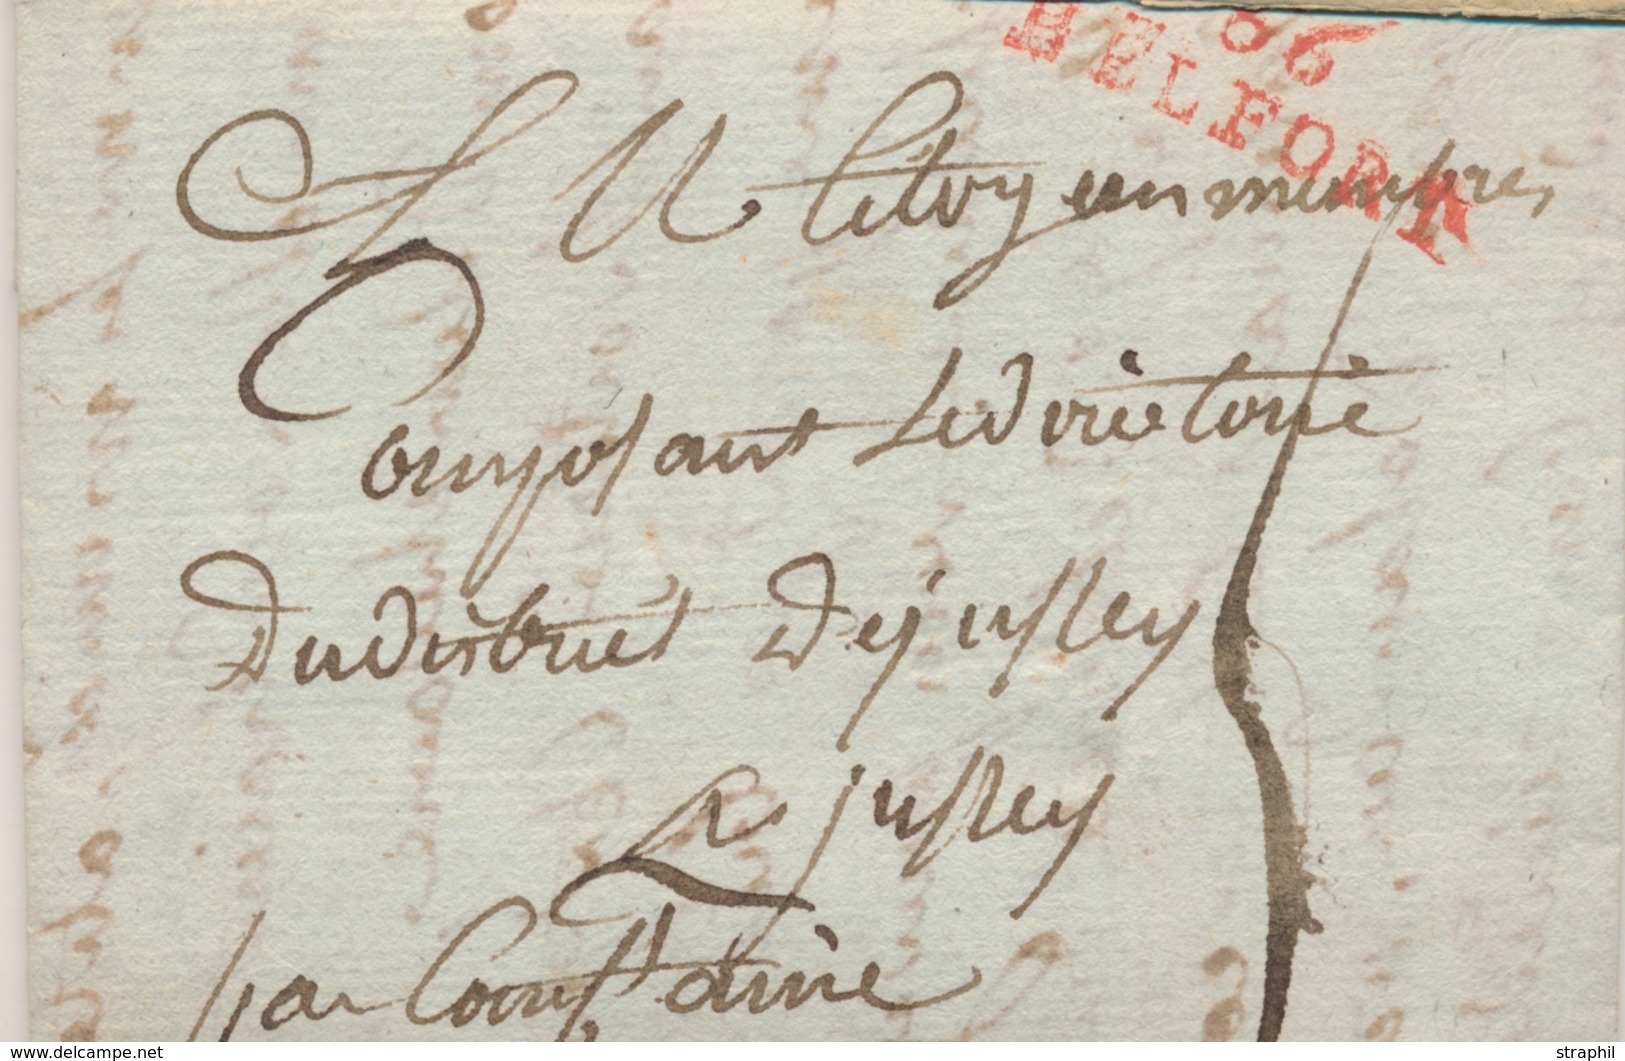 86
BELFORT
Au Citoyen membres
Composant Le directoire
Du district De jussey
A jussey
par Comptaine
www.delcampe.net
straphil